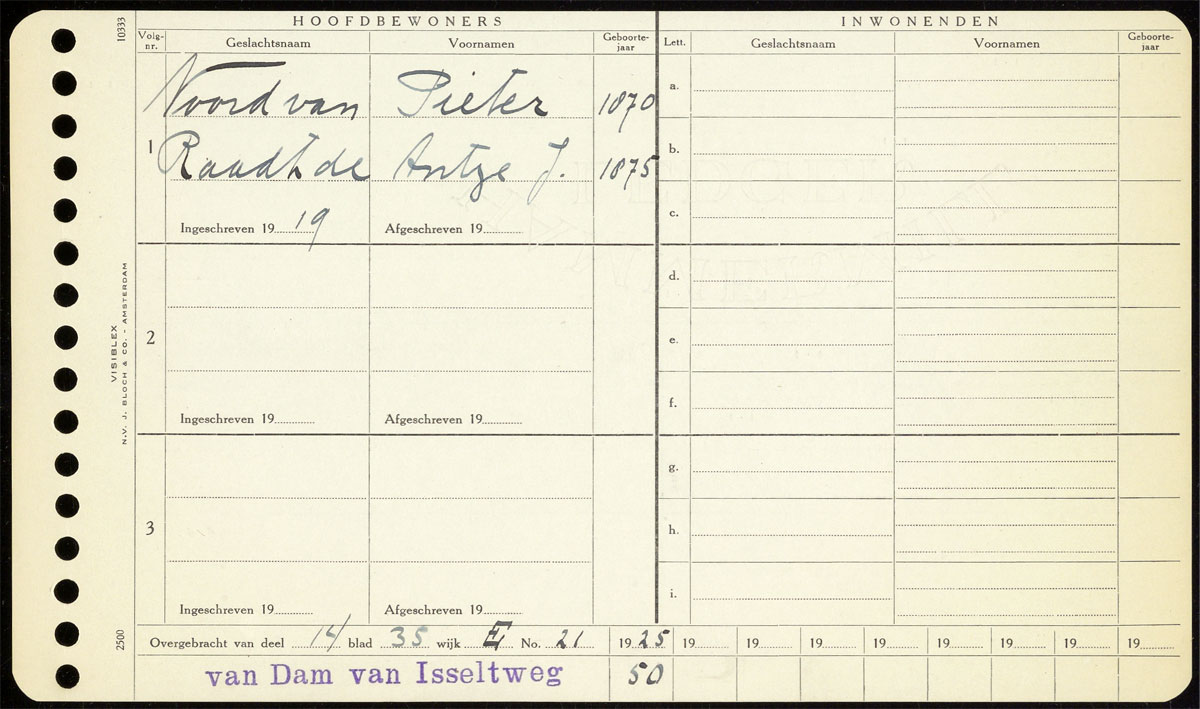 HOOFDBEWONERS
INWONENDEN
10333
Volg-nr. Geslachtsnaam Voornamen Geboorte-jaar Lett. Geslachtsnaam Voornamen Geboorte-jaar
Noord van Pieter 1870
1 Raadt de Antje J. 1875
Ingeschreven 19 19 Afgeschreven 19
2
Ingeschreven 19 Afgeschreven 19
3
Ingeschreven 19 Afgeschreven 19
a.
b.
c.
d.
e.
f.
g.
h.
i.
VISIBLEX
N.V. J. BLOCH & CO. - AMSTERDAM
2500
Overgebracht van deel 14 blad 35 wijk E No. 21 1925 19 19 19 19 19 19 19 19
van Dam van Isseltweg 50